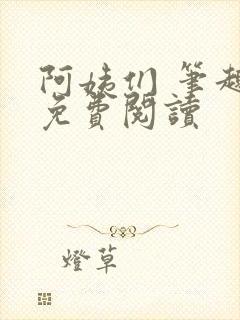 阿姨们 筆趣
免費閱讀
燈草